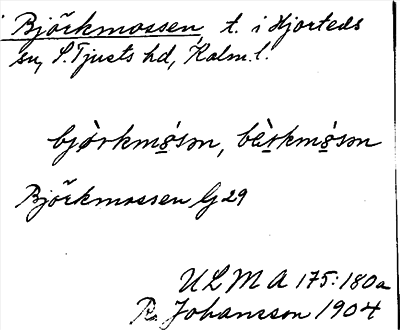 Björkmossen, t. i Hjorteds
sn, S. Tjusts hd, Kalm. l.
bjòrkmo̱̊sən, bo̱rkmo̱̊sən
Björkmossen G 29
ULMA 175:180a
R. Johansson 1904